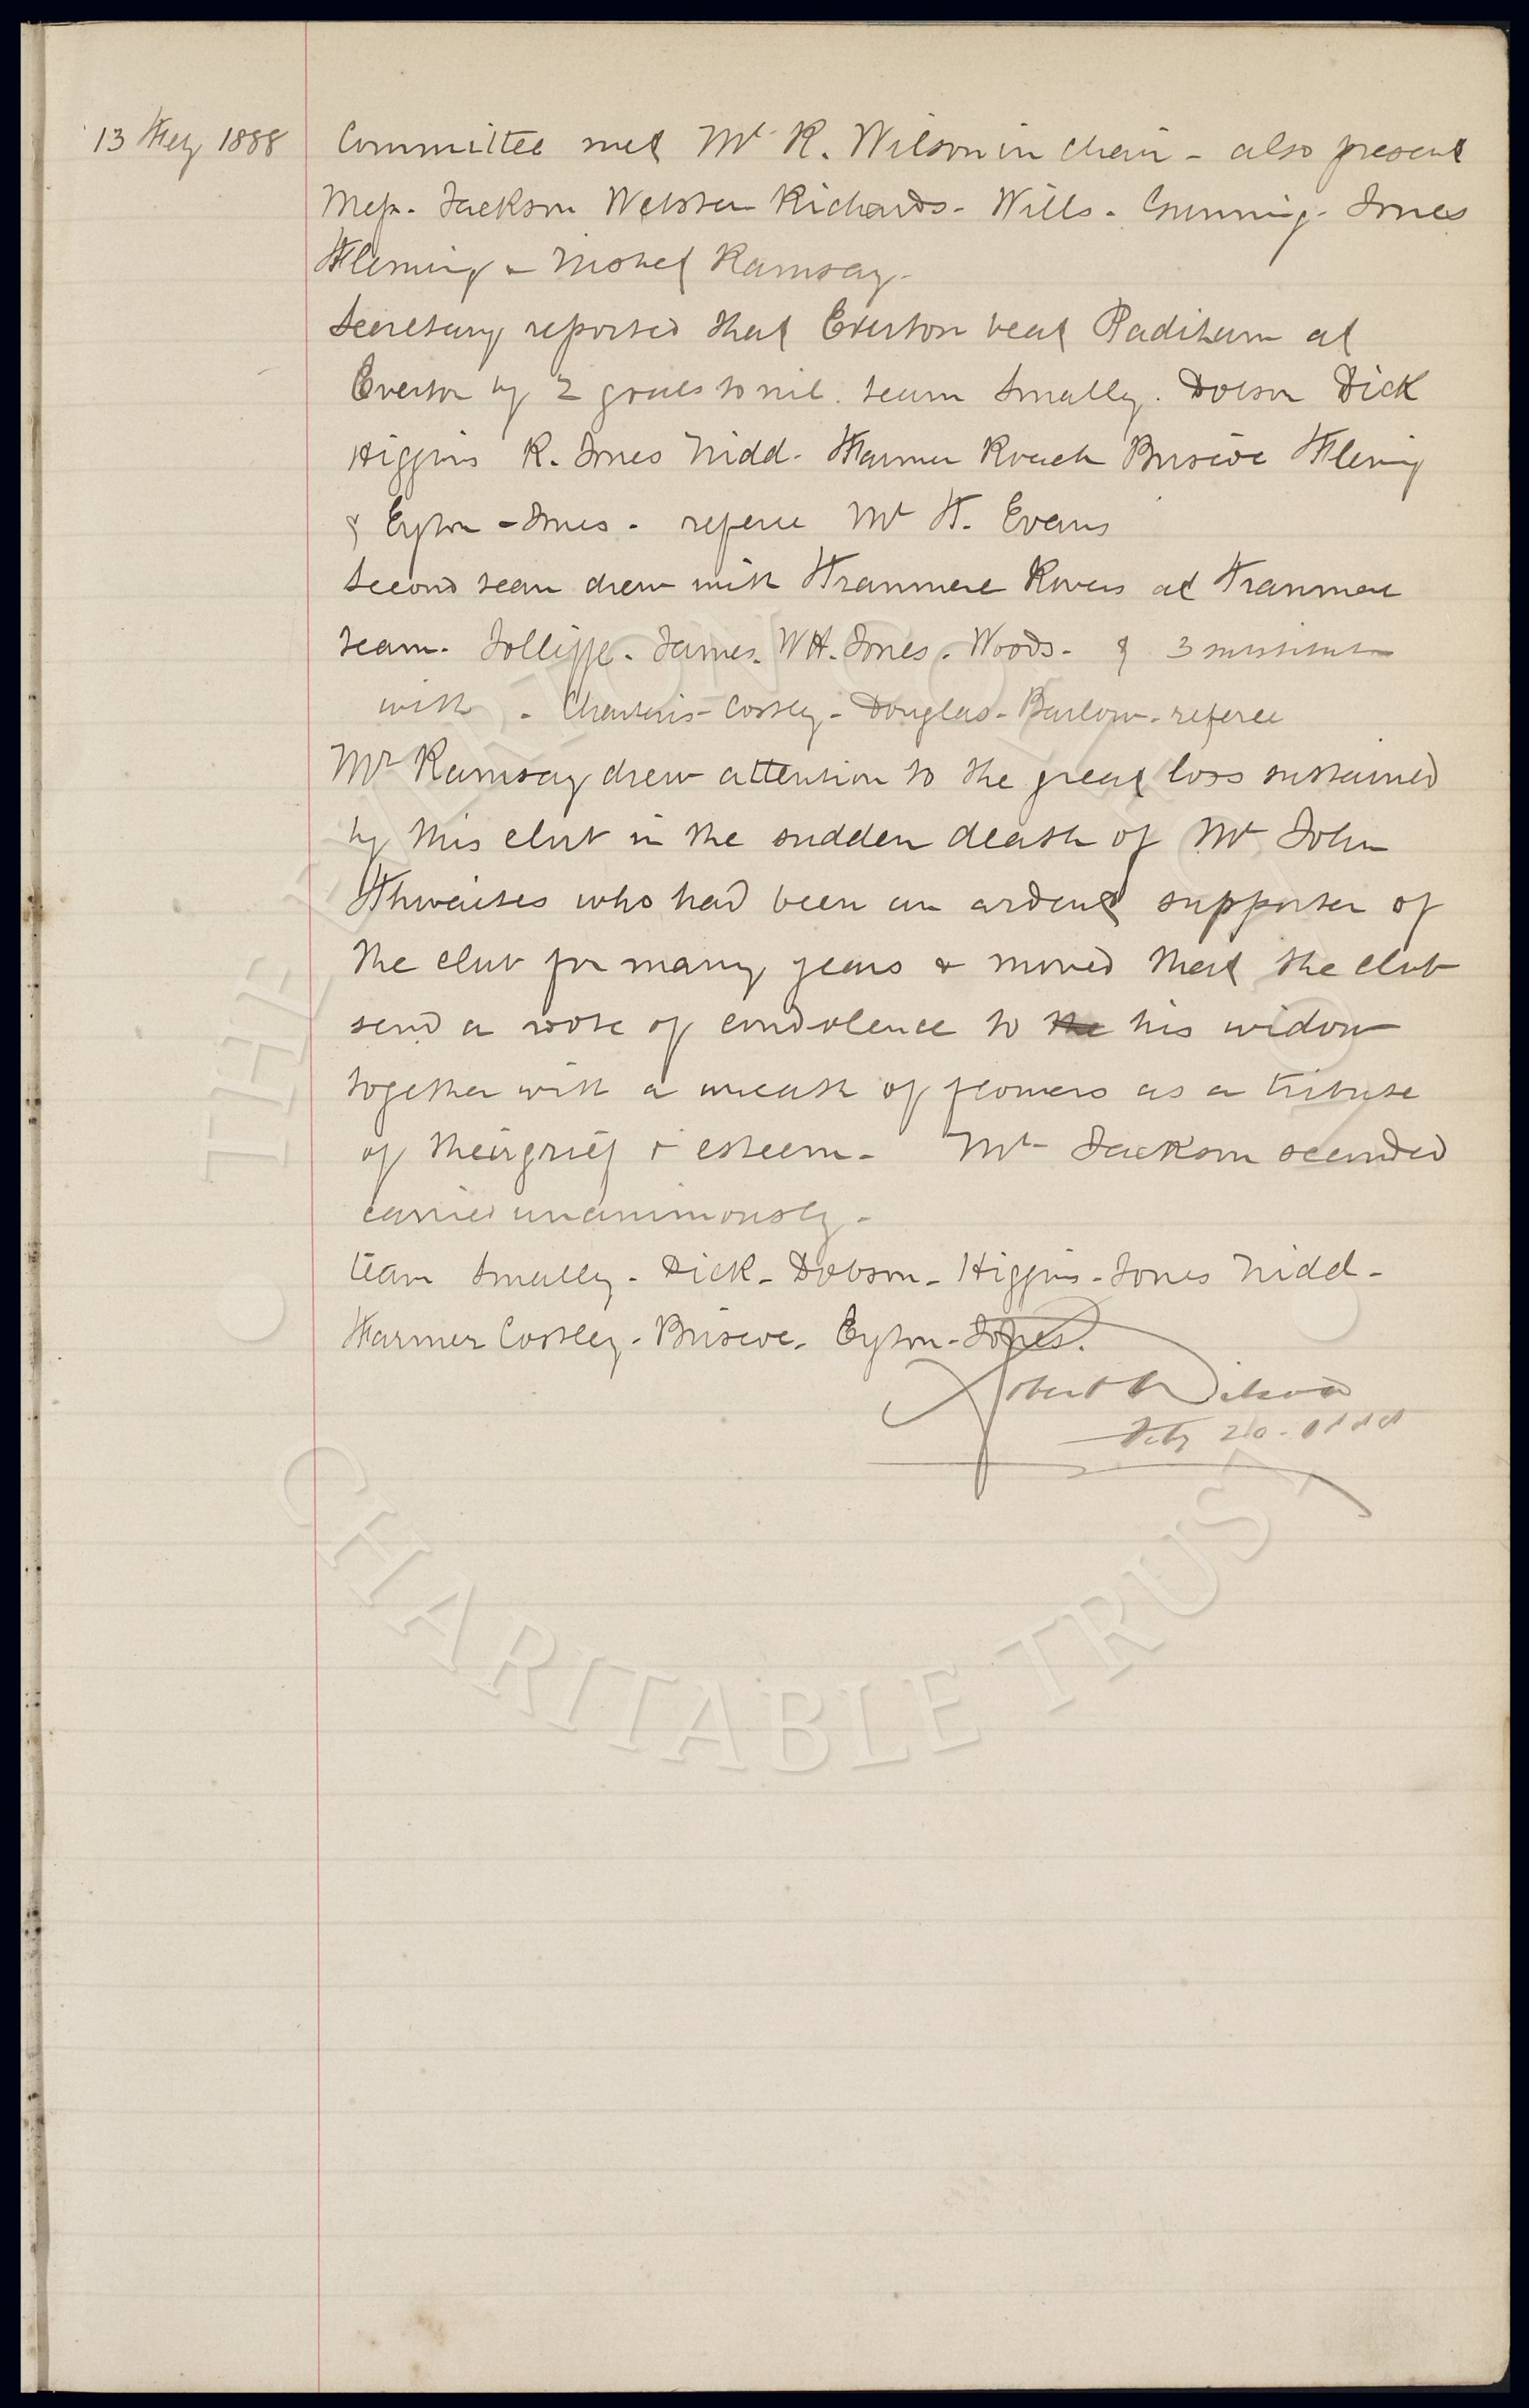 13 Feby 1888
Committee met Mr R. Wilson in chair - also present
Mess. Jackson Webster Richards - Wills - Gunning - Jones
Fleming - Ramsay -
Secretary reported that Everton beat Padiham at
Everton by 2 goals to nil. team Smalley. Dobson Dick
Higgins R. Jones Nidd. Farmer Roach Briscoe Fleming
& Eyton-Jones. referee Mr T. Evans
Second team drew with Tranmere Rovers at Tranmere
team. Jolliffe. James. W H. Jones. Woods. & 3 substitutes
with - Charteris - Costley - Douglas - Barlow - referee
Mr Ramsay drew attention to the great loss sustained
by this club in the sudden death of Mr John
Thwaites who had been an ardent supporter of
the club for many years & moved that the club
send a vote of condolence to the his widow
together with a wreath of flowers as a tribute
of their grief & esteem - Mr Jackson seconded
carried unanimously -
team Smalley - Dick - Dobson - Higgins - Jones Nidd -
Farmer Costley - Briscoe - Eyton-Jones.
Robert Wilson
Feby 20. 1888
THE EVERTON COLLECTION
CHARITABLE TRUST